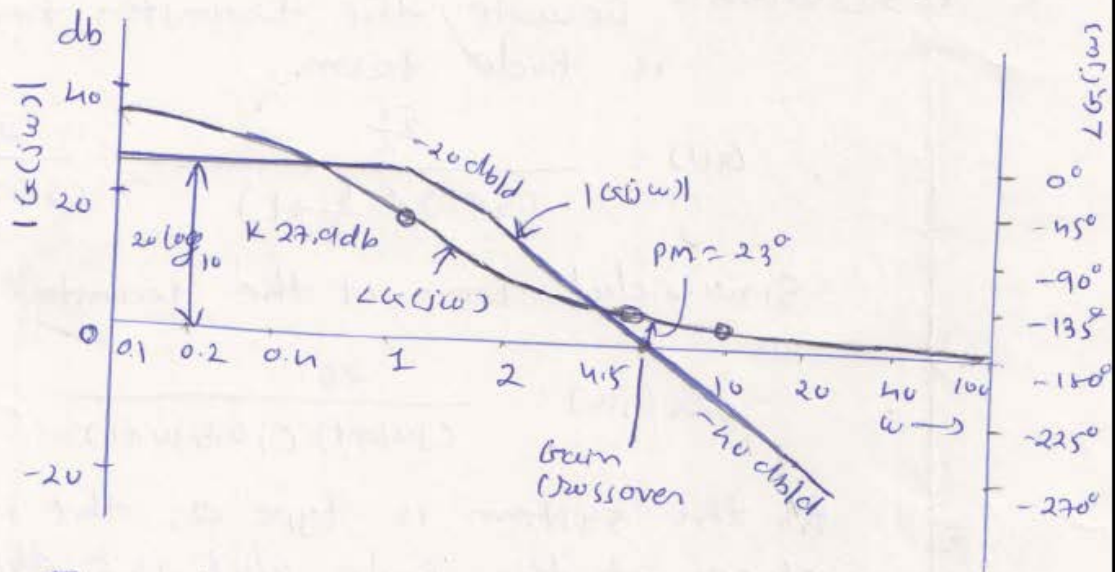 db
|G(jω)|
40
20
0
-20
20 log10
K 27.9db
∠G(jω)
-20db/d
|G(jω)|
PM = 23°
0.1 0.2 0.4 1 2 4.5 10 20 40 100
ω →
Gain
Crossover
-40 db/d
∠G(jω)
0°
-45°
-90°
-135°
-180°
-225°
-270°